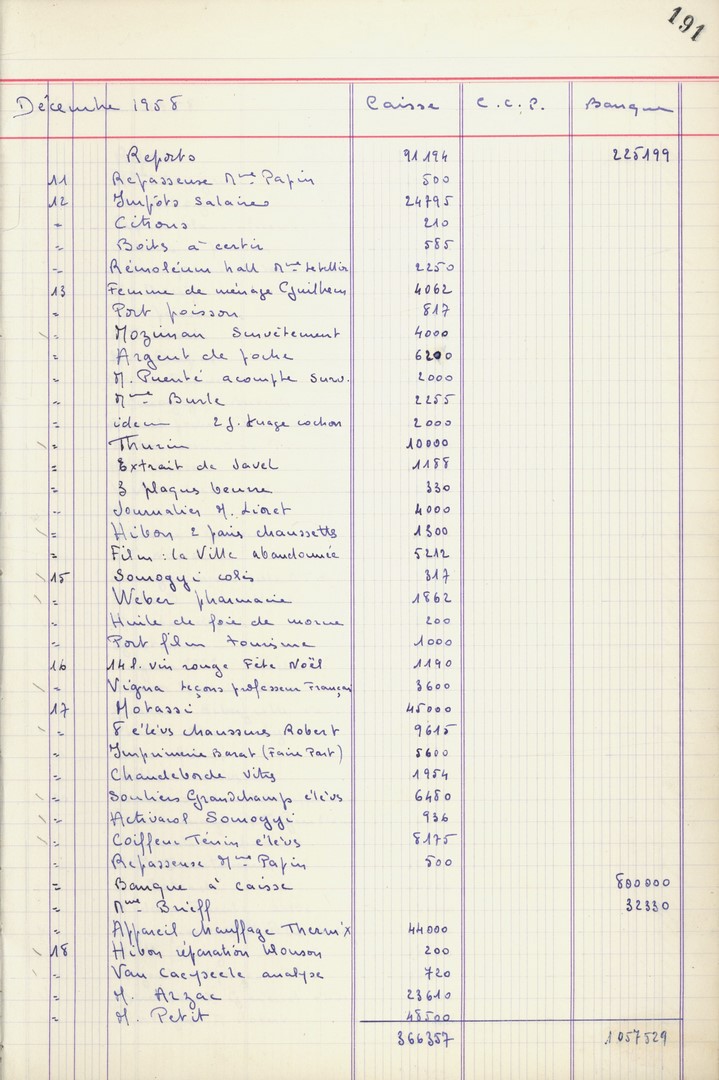 191
Décembre 1958 Caisse C.C.P. Banque
Reports 91194 225199
11 Repasseuse Mme Papin 500
12 Impôts salaires 24795
" Citrons 210
" Boîts à certir 585
" Rémoléum hall Mme Letellier 2250
13 Femme de ménage Cguilhem 4062
" Port poisson 817
" Mozinan Survêtement 4000
" Argent de poche 6200
" M. Puenté acompte surv. 2000
" Mme Burle 2255
" idem 2 j. tuage cochon 2000
" Thurin 10000
" Extrait de Javel 1188
" 3 plaques beurre 330
" Journalier M. Lioret 4000
" Hibon 2 pairs chaussetts 1300
" Film : la Ville abandonnée 5212
15 Somogyi colis 317
" Weber pharmacie 1862
" Huile de foie de morue 200
" Port film tourisme 1000
16 14 l. vin rouge Fête Noël 1190
" Vigna leçons professeur Français 3600
17 Motassi 45000
" 8 élèvs chaussures Robert 9615
" Imprimerie Barat (Faire Part) 5600
" Chandeborde vitrs 1954
" Souliers Grandchamps élèvs 6480
" Activarol Somogyi 936
" Coiffeur Ténin élèvs 8175
" Repasseuse Mme Papin 500
" Banque à caisse 800000
" Mme Brieff 32330
" Appareil chauffage Therm'x 44000
18 Hibon réparation blouson 200
" Van Caeyseele analyse 720
" M. Arzac 23610
" M. Petit 48500
366357 1057529